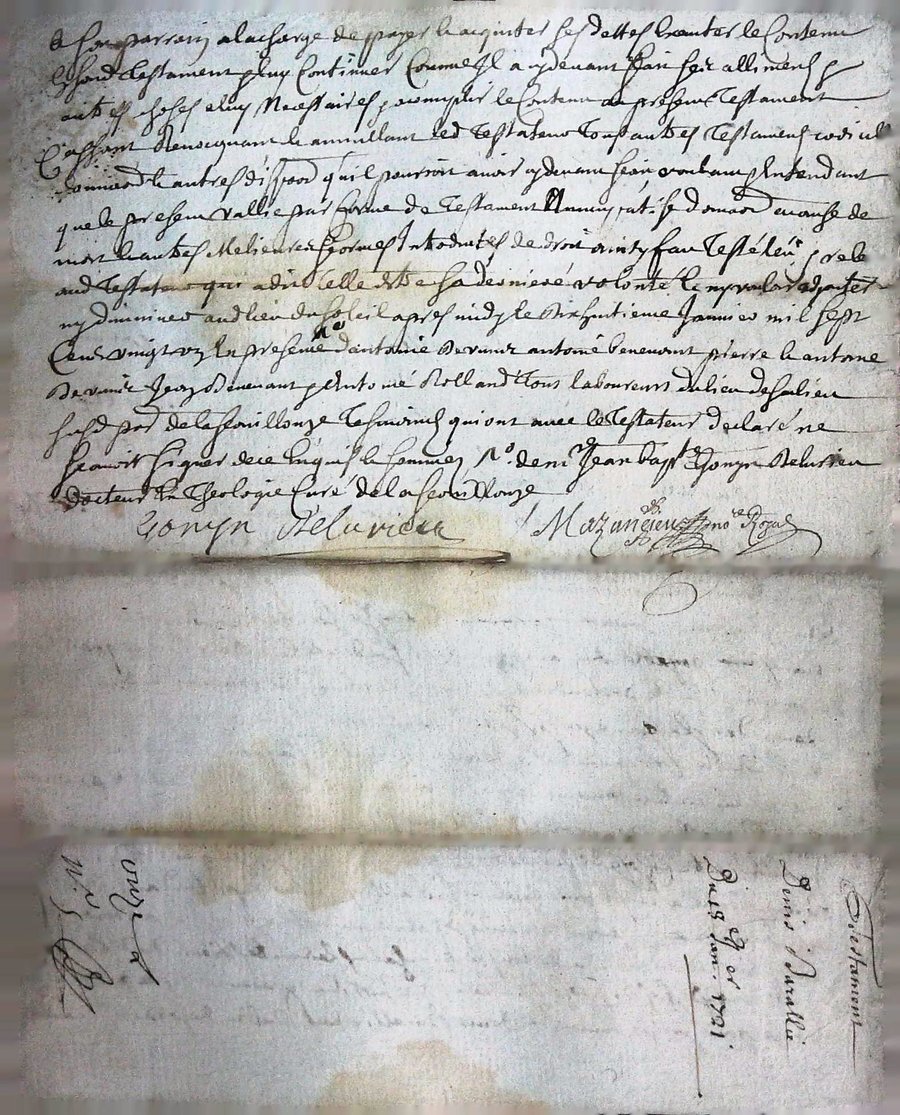 a son parrain a la charge de payer & acquiter ses dettes & executer le Contenu
aud Testament & luy Continuer Comme Il a cydevant fait ses alliments &
autres choses a luy Necessaires, accomplir le Contenu au present Testament
Cassant Revocquant & annullant led Testateur Tous autres Testaments codicil
donnaõns & autres disposõns quil pourroit avoir cydevant fait voulant & Entendant
que le present vallie par forme de Testament Nuncupatif donnaõn a cause de
mort & autres Melieures formes Introduites de droit ainsy fait Testé leu, & relu
aud Testateur qui a dit telle Estre sa derniere volonté & ny vouloir adjouter
ny diminuer aud lieu du Soleil apres midy le dixhuitieme Janvier mil sept
Cent vingt un En presence d'antoine antoine benevent pierre & antoine
Jean Benevant & antoine Rolland Tous laboureurs du lieu
susd par de la feouillouze Tesmoins qui ont avec le Testateur declaré ne
scavoir signer de ce Enquis & sommes de mr Jean bapte Gonyn Delurieu
docteur En Theologie Curé de la feouillouze
Gonyn Delurieu Mazancieux no.re Royal
Testament
Denis
Du 18 Jan.er 1721
onze